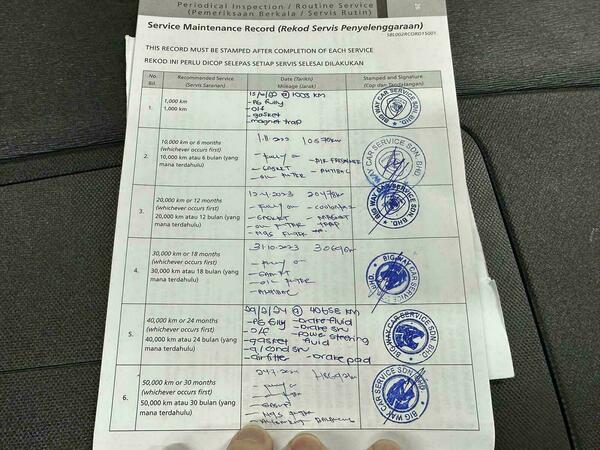 Periodical Inspection / Routine Service
(Pemeriksaan Berkala / Servis Rutin)
Service Maintenance Record (Rekod Servis Penyelenggaraan)
THIS RECORD MUST BE STAMPED AFTER COMPLETION OF EACH SERVICE
REKOD INI PERLU DICOP SELEPAS SETIAP SERVIS SELESAI DILAKUKAN
No.
Bil.
Recommended Service
(Servis Saranan)
Date (Tarikh)
Mileage (Jarak)
Stamped and Signature
(Cop dan Tandatangan)
1.
1,000 km
1,000 km
@ 1003 km
- PG fully
- O/F
- gasket
- magnet trap
BIG WAY CAR SERVICE SDN. BHD.
2.
10,000 km or 6 months
(whichever occurs first)
10,000 km atau 6 bulan (yang
mana terdahulu)
10570km
- fully
- AIR FRESHNER
- GASKET
- ANTIBAC
- OIL FILTER
WAY CAR SERVICE SDN. BHD
3.
20,000 km or 12 months
(whichever occurs first)
20,000 km atau 12 bulan (yang
mana terdahulu)
12-4-2023 20478km
- GASKET
- MAGNET
- OIL FILTER TRAP
BIG WAY CAR SERVICE SDN BHD.
4.
30,000 km or 18 months
(whichever occurs first)
30,000 km atau 18 bulan (yang
mana terdahulu)
31-10-2023
- GASKET
- OIL FILTER
- ANTIBAC
BIG WAY CAR SERVICE
5.
40,000 km or 24 months
(whichever occurs first)
40,000 km atau 24 bulan (yang
mana terdahulu)
29/2/24 @ 40658 km
- PG fully - brake fluid
- O/F - brake srv
- gasket - power steering fluid
- a/cond srv
- airfilter - brake pad
BIG WAY CAR SERVICE SDN BHD
6.
50,000 km or 30 months
(whichever occurs first)
50,000 km atau 30 bulan (yang
mana terdahulu)
- GASKET
BIG WAY CAR SERVICE SDN. BHD